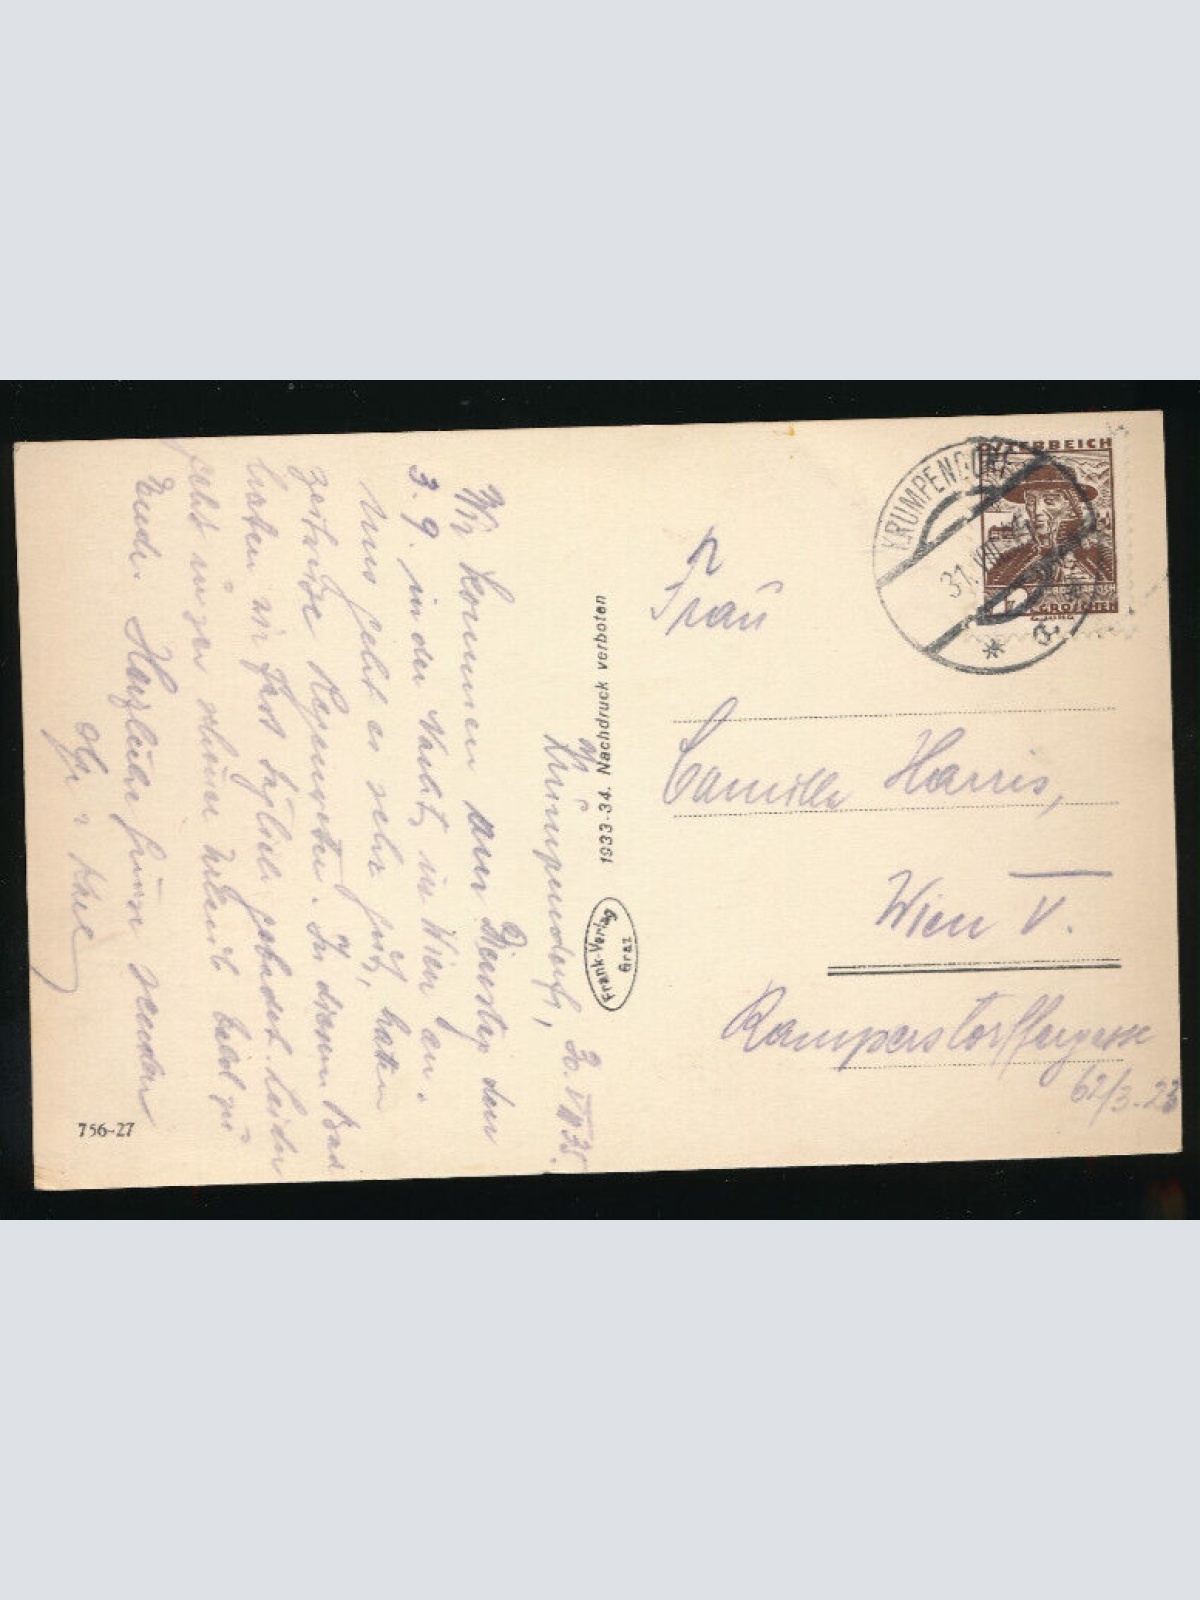 Krumpendorf, 30.VIII 35.
Wir kommen am Dienstag den
3. 9. in der Nacht, in Wien an.
Uns geht es sehr gut, hatten
zeitweise Regenwetter. In diesem Bad
haben wir fast täglich gebadet. Leider
geht unser schöner Urlaub bald zu
Ende. Herzliche Grüße senden
756-27
1933-34. Nachdruck verboten
Frank-Verlag
Graz
KRUMPENDORF
31. VIII
ÖSTERREICH
GROSCHEN
Frau
Camilla Harris,
Wien V.
Ramperstorffergasse
62/3.23